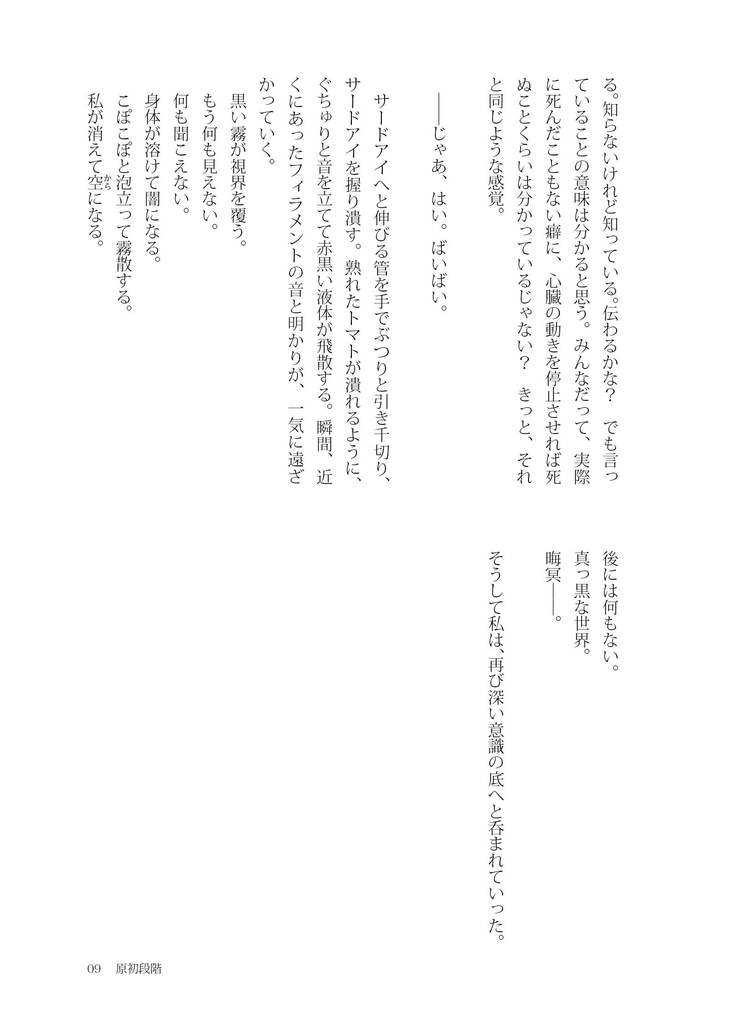 る。知らないけれど知っている。伝わるかな？　でも言っ
ていることの意味は分かると思う。みんなだって、実際
に死んだこともない癖に、心臓の動きを停止させれば死
ぬことくらいは分かっているじゃない？　きっと、それ
と同じような感覚。
――じゃあ、はい。ばいばい。
サードアイへと伸びる管を手でぶつりと引き千切り、
サードアイを握り潰す。熟れたトマトが潰れるように、
ぐちゅりと音を立てて赤黒い液体が飛散する。瞬間、近
くにあったフィラメントの音と明かりが、一気に遠ざ
かっていく。
黒い霧が視界を覆う。
もう何も見えない。
何も聞こえない。
身体が溶けて闇になる。
こぽこぽと泡立って霧散する。
私が消えて空になる。
から
後には何もない。
真っ黒な世界。
晦冥――。
そうして私は、再び深い意識の底へと呑まれていった。
09　原初段階